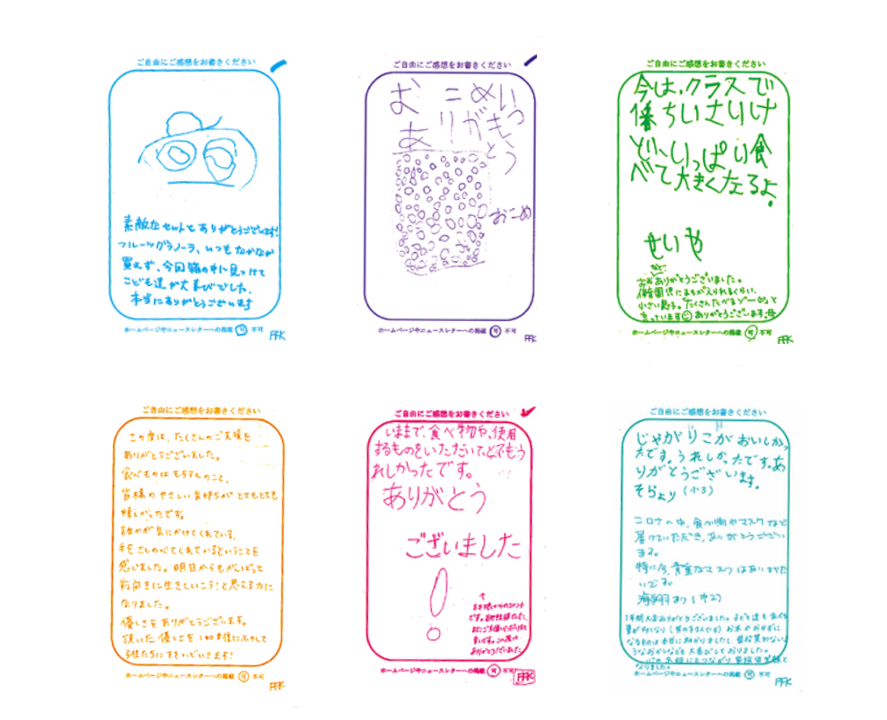 ご自由にご感想をお書きください
素敵なセットをありがとうございます!
フルーツグラノーラ、いつもなかなか
買えず、今回箱の中に見つけて
こども達が大喜びでした。
本当にありがとうございます
ホームページやニュースレターへの掲載 可 不可
FFK
ご自由にご感想をお書きください
いつもおこめありがとう
おこめ
ホームページやニュースレターへの掲載 可 不可
FFK
ご自由にご感想をお書きください
今は、クラスで
ちいさいけ
ど、いっぱい食
べて大きくなるよ!
せいや
ありがとうございました。
保育園児にまちがえられるくらい、
小さい息子。「たくさんたべるゾー」と
言っています ありがとうございます。母
ホームページやニュースレターへの掲載 可 不可
FFK
ご自由にご感想をお書きください
この度は、たくさんのご支援を
ありがとうございました。
食べものはもちろんのこと、
皆様のやさしい気持ちが とてもとても
嬉しかったです。
誰かが気にかけてくれている、
手をさしのべてくれているということを
感じました。明日からもがんばって
前向きに生きていこう!と思える力に
なりました。
優しさをありがとうございます。
頂いた優しさを 倍にして
子供たちに
ホームページやニュースレターへの掲載 可 不可
FFK
ご自由にご感想をお書きください
いままで、食べ物や、使用
するものをいただいて、とてもう
れしかったです。
ありがとう
ございました
!
ありがとうございました
ホームページやニュースレターへの掲載 可 不可
FFK
ご自由にご感想をお書きください
じゃがりこがおいしかっ
たです。うれしかったです。あ
りがとうございます。
そらより (小3)
コロナの中、食べ物やマスクなど
届けていただき、ありがとうござい
ます。
特に今、貴重なマスクはありがた
いです。
より (中2)
1年間大変ありがとうございました。子ども達も
なりました。
ホームページやニュースレターへの掲載 可 不可
FFK